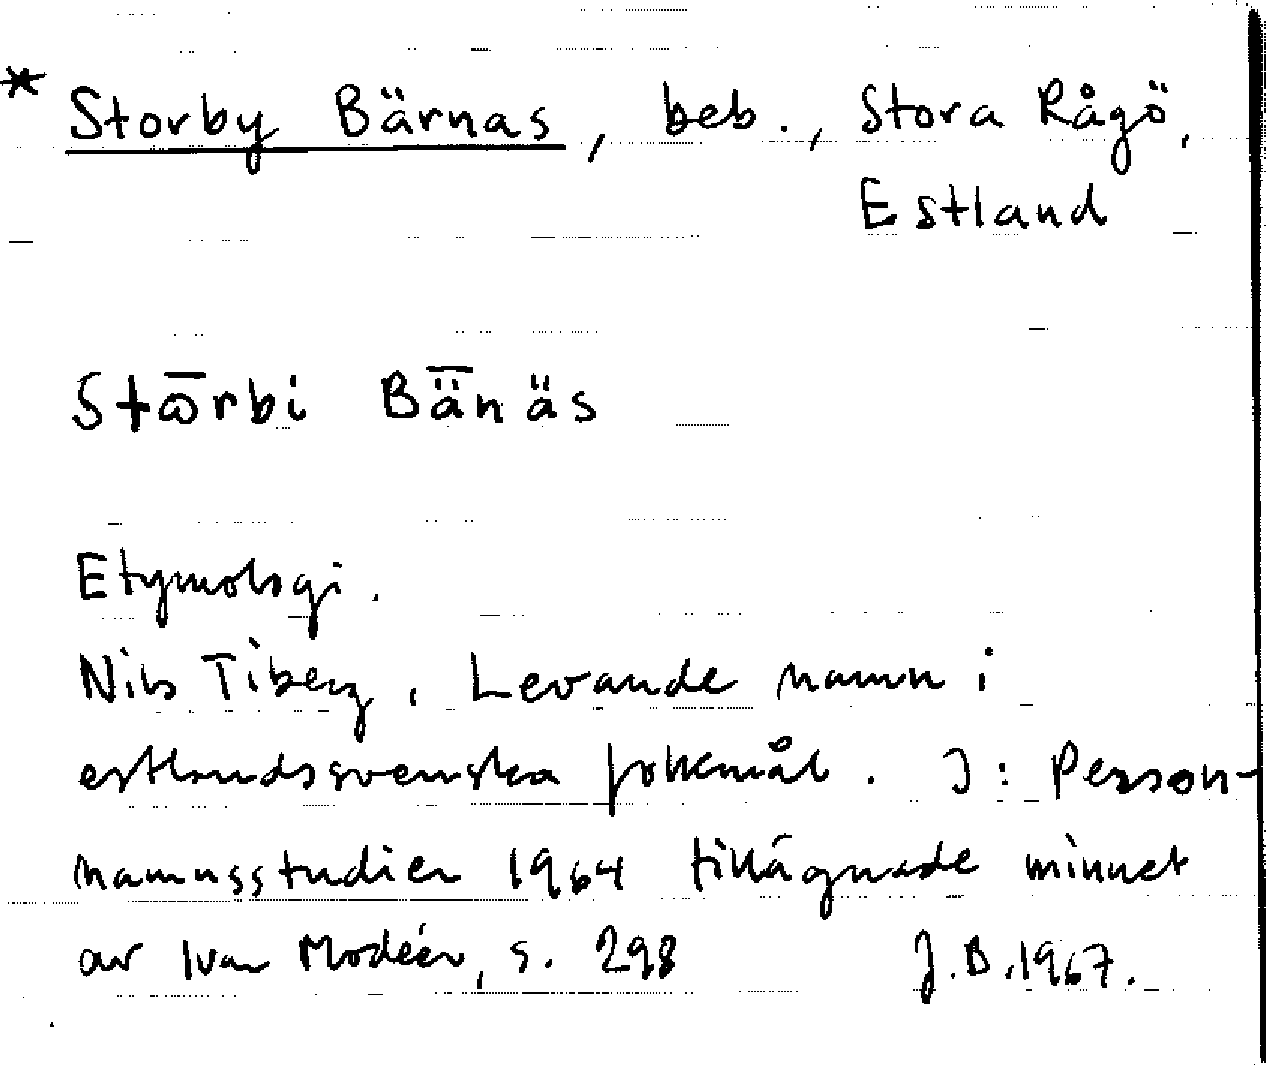 * Storby Bärnas, beb., Stora Rågö,
Estland
Stω̄rbi Bǟnäs
Etymologi.
Nils Tiberg, Levande namn i
estlandssvenska folkmål. I: Person-
namnsstudier 1964 tillägnade minnet
av Ivar Modéer, s. 298 J.B.1967.